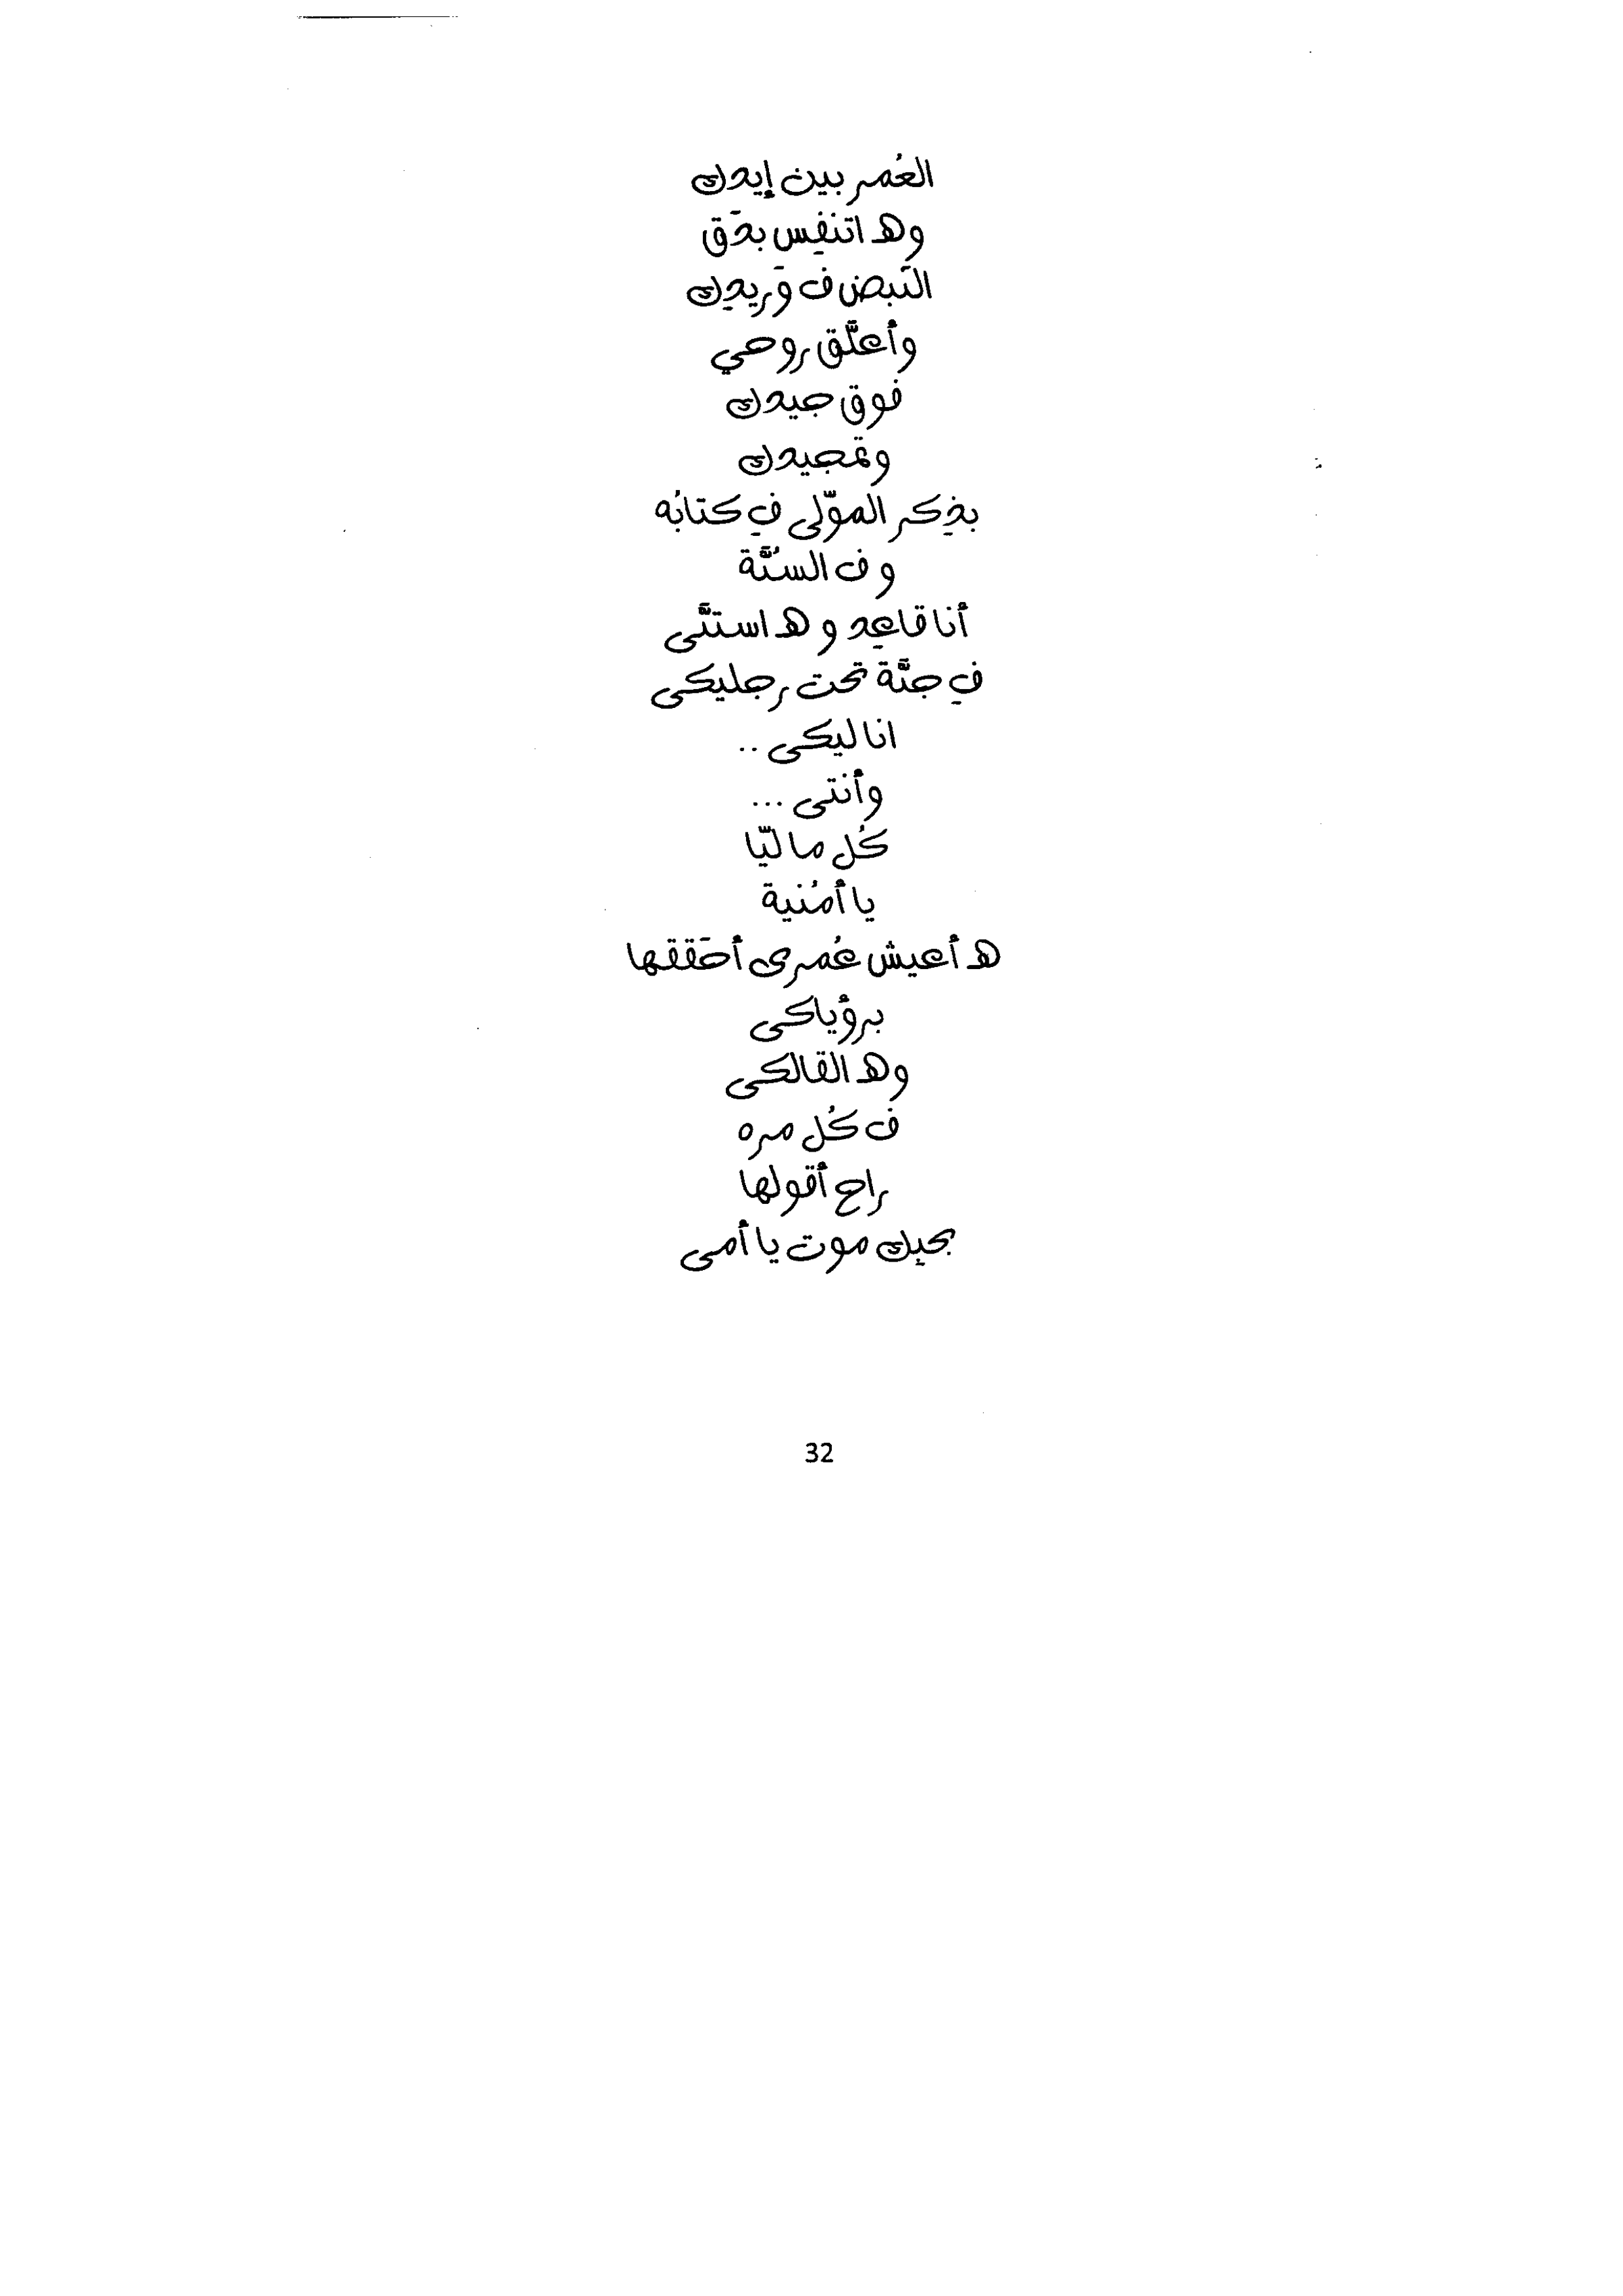 العُمر بين إيدك
وهـ اتنفِس بدَق
النَبض ف وَريدِك
وأعلَّق روحي
فوق جيدك
وتمجيدك
بذِكر الموّلى فِ كتابُه
و ف السُنَّة
أنا قاعِد و هـ استنَّى
فِ جنَّة تحت رجليكى
انا ليكى ..
وأنتى ...
كُل ما ليّا
يا أمُنية
هـ أعيش عُمرى أحَققها
برؤياكى
وهـ القالكى
ف كُل مره
راح أقولها
بحبِك موت يا أمى
32